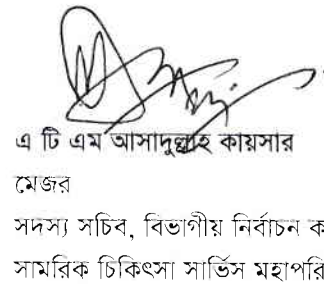 এ টি এম আসাদুল্লাহ কায়সার
মেজর
সদস্য সচিব, বিভাগীয় নির্বাচন ক
সামরিক চিকিৎসা সার্ভিস মহাপরি